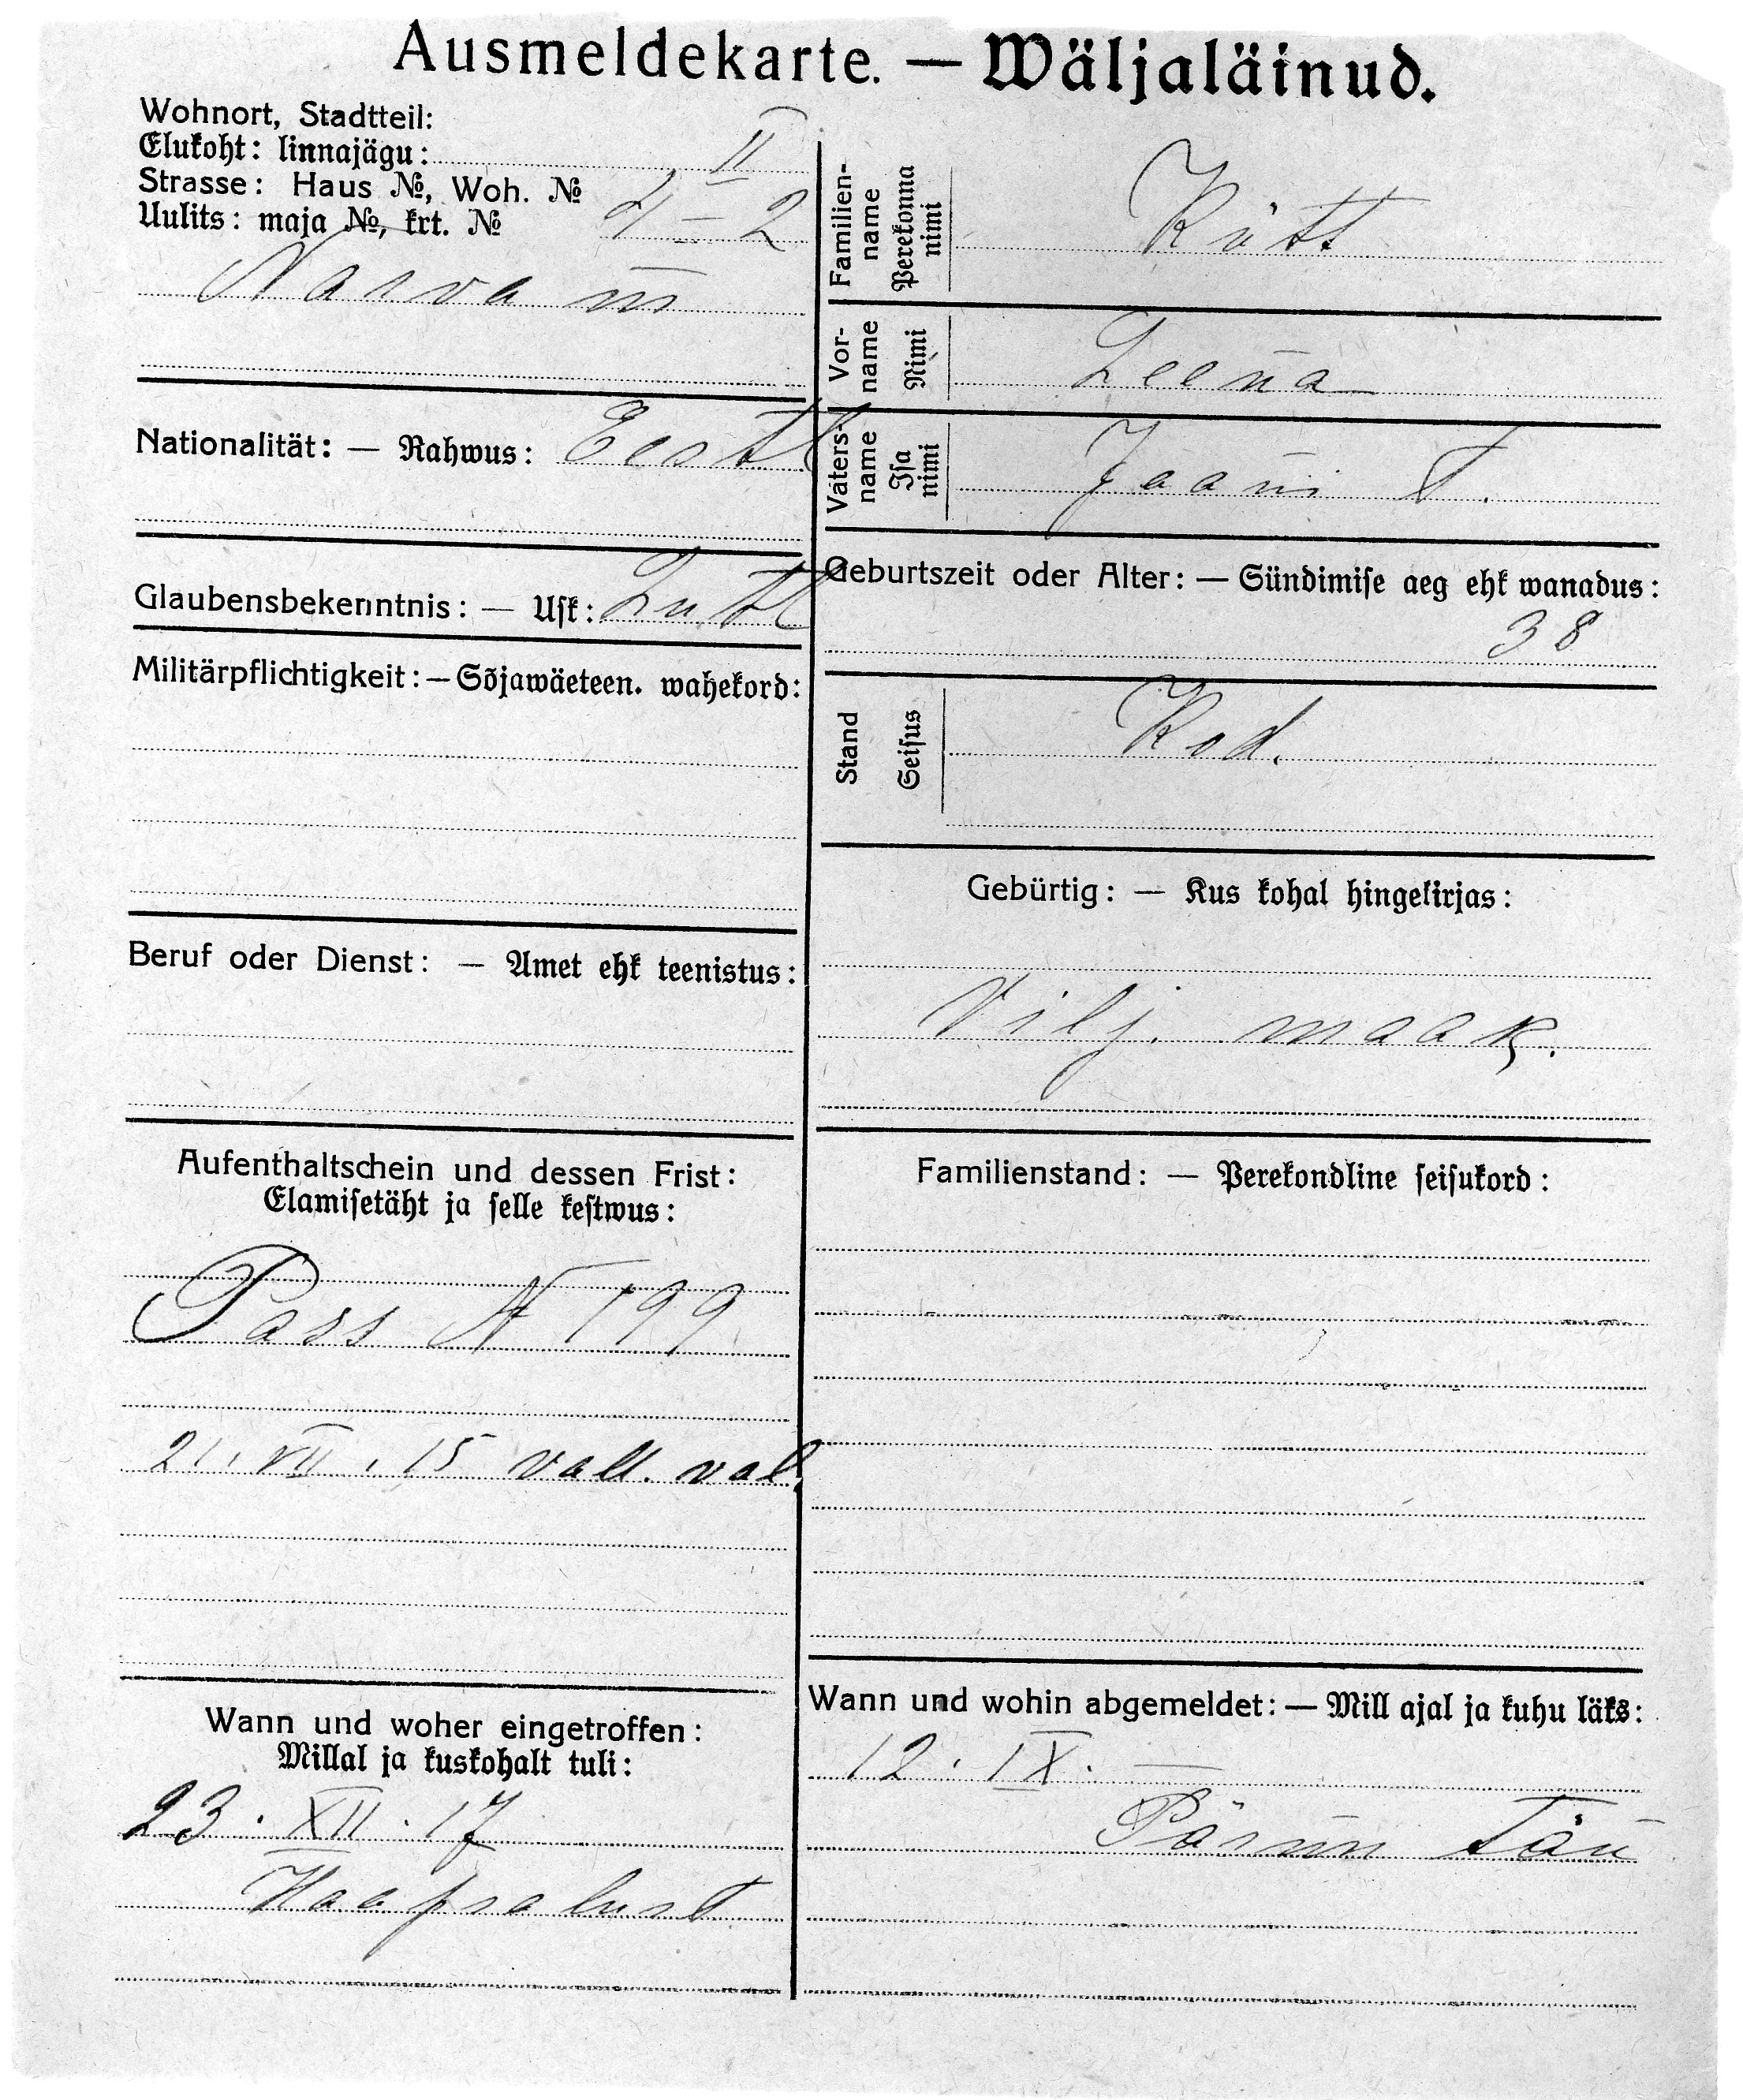 Ausmeldekarte. — Wäljaläinud.
Wohnort, Stadtteil:
Elukoht: linnajägu: II
Strasse: Haus №, Woh. №
Uulits: maja №, krt. № 4 – 2
Narva m
Nationalität: — Rahwus: Eestl
Glaubensbekenntnis: — Usk: Lutl
Militärpflichtigkeit: — Sõjawäeteen. wahekord:
Beruf oder Dienst: — Amet ehk teenistus:
Aufenthaltschein und dessen Frist:
Elamisetäht ja selle kestwus:
Pass N 199
21. VII. 15 vall. val.
Wann und woher eingetroffen:
Millal ja kuskohalt tuli:
23. XII. 17
Haapsalust
Familien-
name
Perekonna
nimi
Kütt
Vor-
name
Nimi
Leena
Vaters-
name
Isa
nimi
Jaani T.
Geburtszeit oder Alter: — Sündimise aeg ehk wanadus:
38
Stand
Seisus
Kod.
Gebürtig: — Kus kohal hingekirjas:
Vilj. maak.
Familienstand: — Perekondline seisukord:
Wann und wohin abgemeldet: — Mill ajal ja kuhu läks:
12. IX.
Pärnu tän